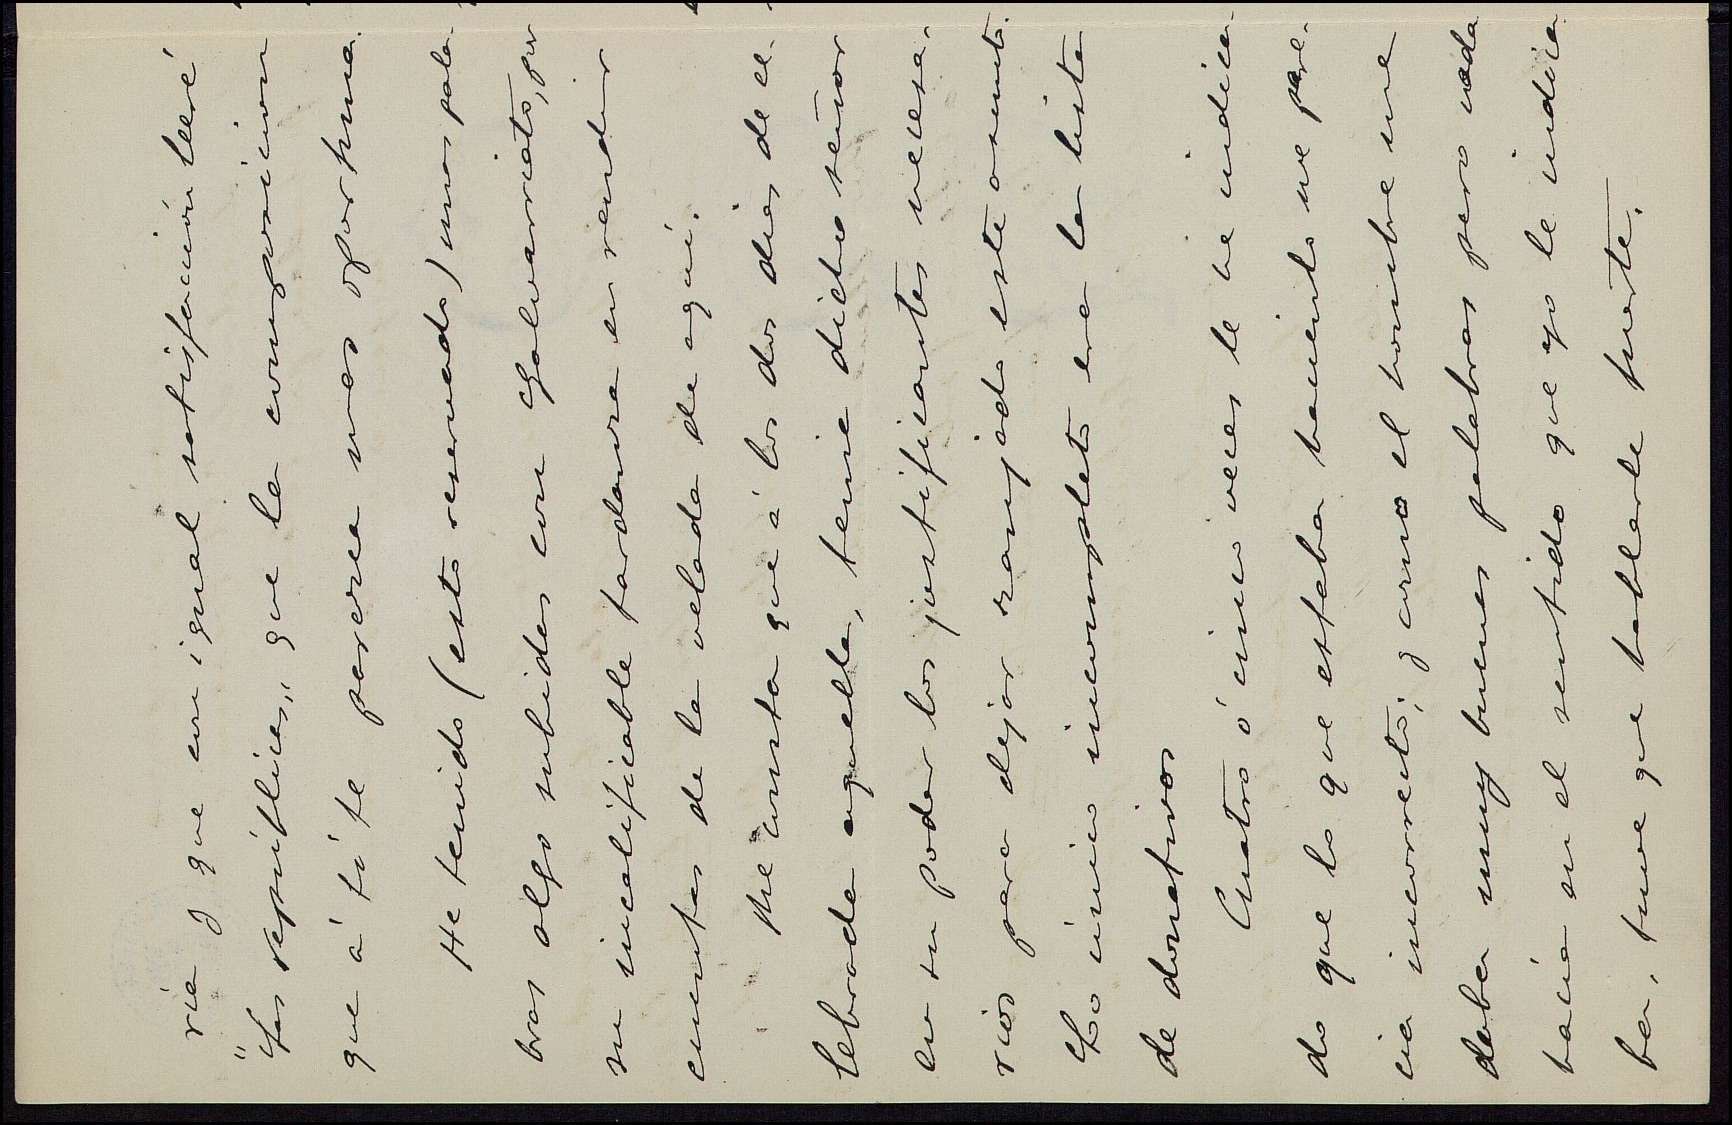 ria y que con igual satisfacción leeré
"Las repúblicas," que la composicion
que á tí te parezca mas oportuna.
He tenido (esto reservado) unas pala-
bras algo subidas con Galvarriato, por
su incalificable tardanza en rendir
cuentas de la velada de aqui.
Me consta que á los dos dias de ce-
lebrada aquella, tenia dicho señor
en su poder los justificantes necesa-
rios para dejar zanjado este asunto.
Lo único incompleto era la lista
de donativos
Cuatro ó cinco veces le he indica-
do que lo que estaba haciendo me pare-
cia incorrecto; y como el hombre me
daba muy buenas palabras pero nada
hacia en el sentido que yo le indica-
ba, tuve que hablarle fuerte.